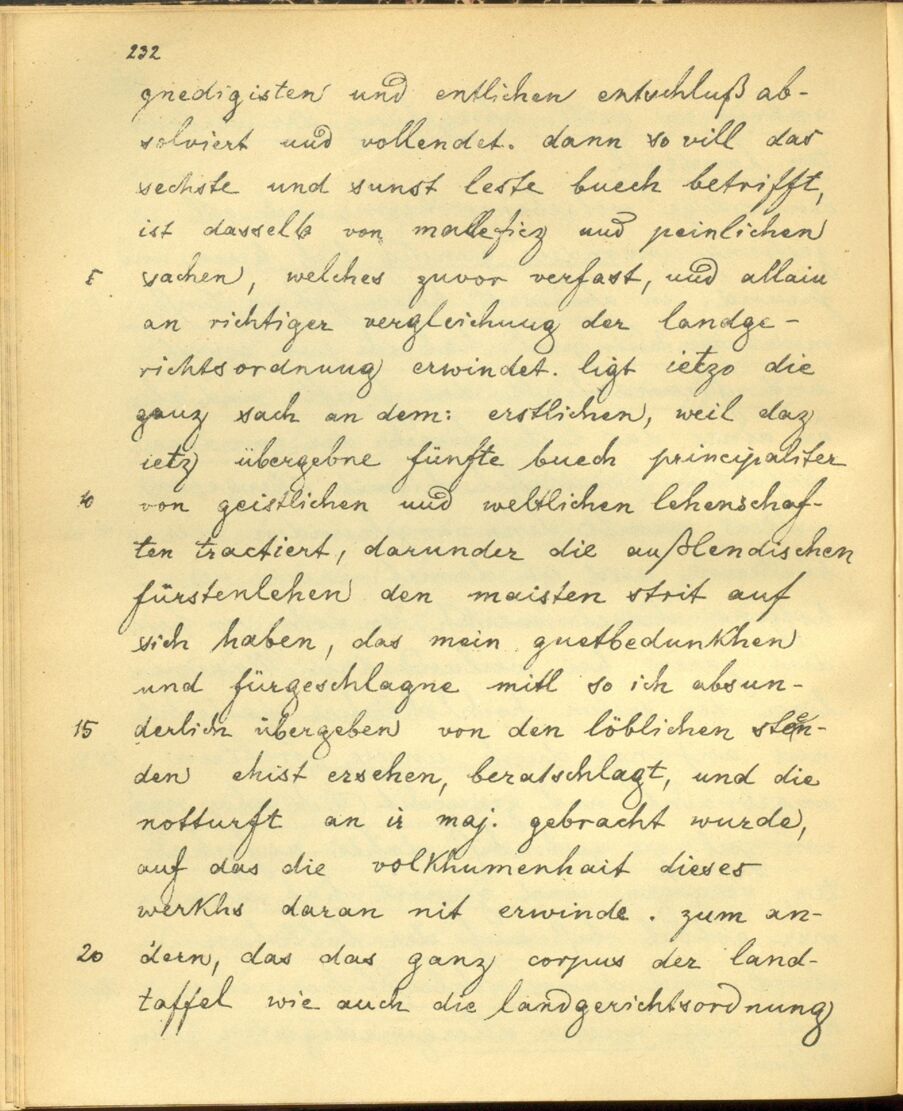 232
gnedigisten und entlichen entschluß ab-
solviert und vollendet. dann so vill das
sechste und sunst leste buech betrifft,
ist dasselb von mallefiz und peinlichen
5 sachen, welches zuvor verfast, und allain
an richtiger vergleichung der landge-
richtsordnung erwindet. ligt ietzo die
ganz sach an dem: erstlichen, weil daz
ietz übergebne fünfte buech principaliter
10 von geistlichen und weltlichen lehenschaf-
ten tractiert, darunder die außlendischen
fürstenlehen den maisten strit auf
sich haben, das mein guetbedunkhen
und fürgeschlagne mitl so ich absun-
15 derlich übergeben von den löblichen sten-
den ehist ersehen, beratschlagt, und die
notturft an ir maj. gebracht wurde,
auf das die volkhumenhait dieses
werkhs daran nit erwinde. zum an-
20 dern, das das ganz corpus der land-
taffel wie auch die landgerichtsordnung